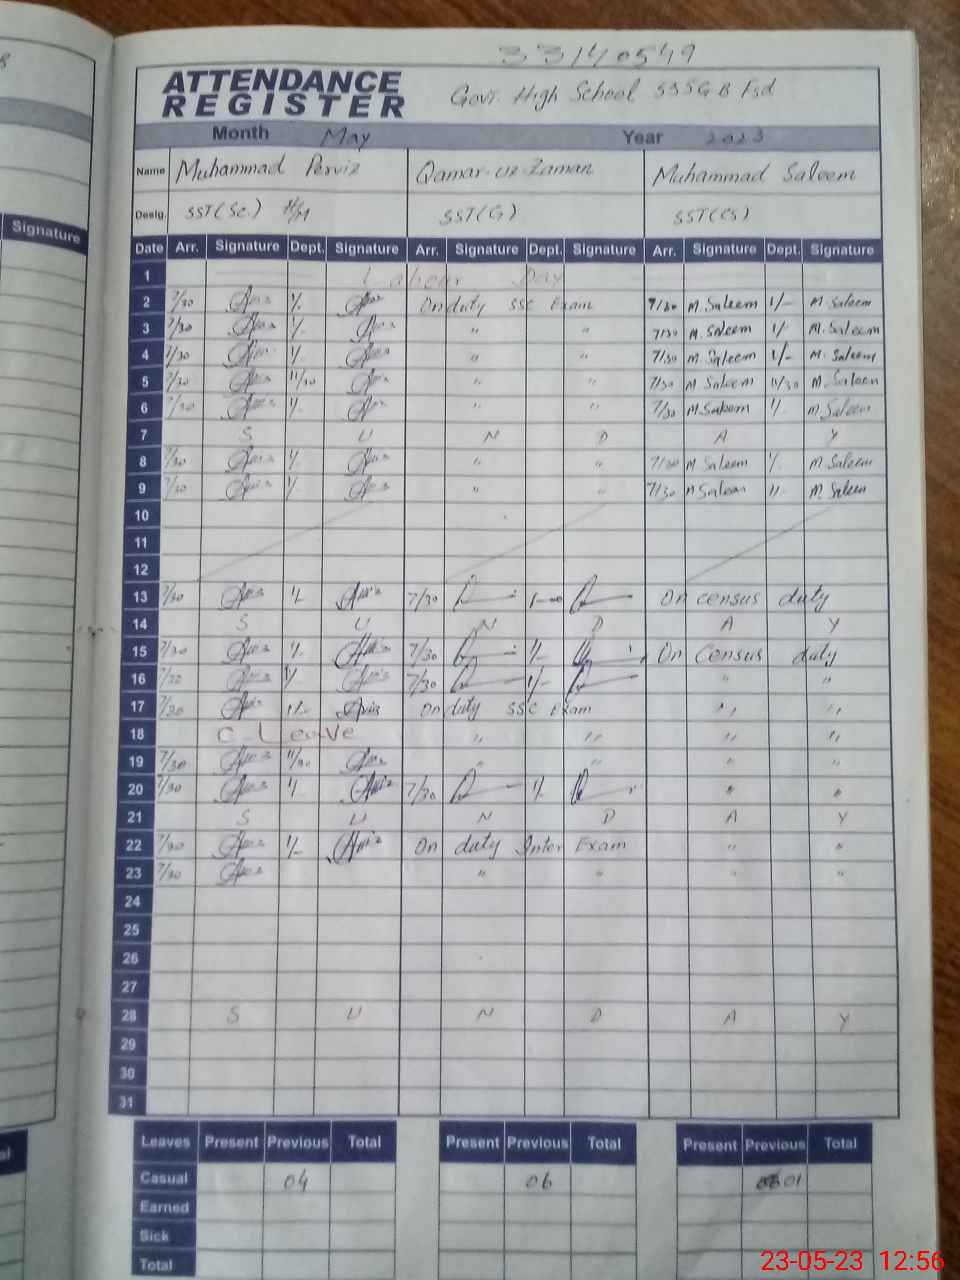 33140549
ATTENDANCE
REGISTER
Govt. High School 555GB Fsd
Month May Year 2023
Name Muhammad Perviz Qamar-uz-Zaman Muhammad Saleem
Desig. SST(Sc.) H/M SST(G) SST(CS)
Signature
Date Arr. Signature Dept. Signature Arr. Signature Dept. Signature Arr. Signature Dept. Signature
1 Labour Day
2 7/30 1/- On duty SSC Exam 7/30 M.Saleem 1/- M.Saleem
3 7/30 1/- " " 7/30 M.Saleem 1/- M.Saleem
4 7/30 1/- " " 7/30 M.Saleem 1/- M.Saleem
5 7/30 11/30 " " 7/30 M Saleem 11/30 M.Saleem
6 7/30 1/- " " 7/30 M.Saleem 1/- M.Saleem
7 S U N D A Y
8 7/30 1/- " " 7/30 M Saleem 1/- M.Saleem
9 7/30 1/- " " 7/30 M Saleem 1/- M.Saleem
10
11
12
13 7/30 1/- 7/30 1-00 On census duty
14 S U N D A Y
15 7/30 1/- 7/30 1/- On Census duty
16 7/30 1/- 7/30 1/- " "
17 7/30 1/- On duty SSC Exam " "
18 C. Leave " " " "
19 7/30 11/30 " " " "
20 7/30 1/- 7/30 1/- " "
21 S U N D A Y
22 7/30 1/- On duty Inter Exam " "
23 7/30 " " " "
24
25
26
27
28 S U N D A Y
29
30
31
Leaves Present Previous Total Present Previous Total Present Previous Total
Casual 04 06 01
Earned
Sick
Total
23-05-23 12:56